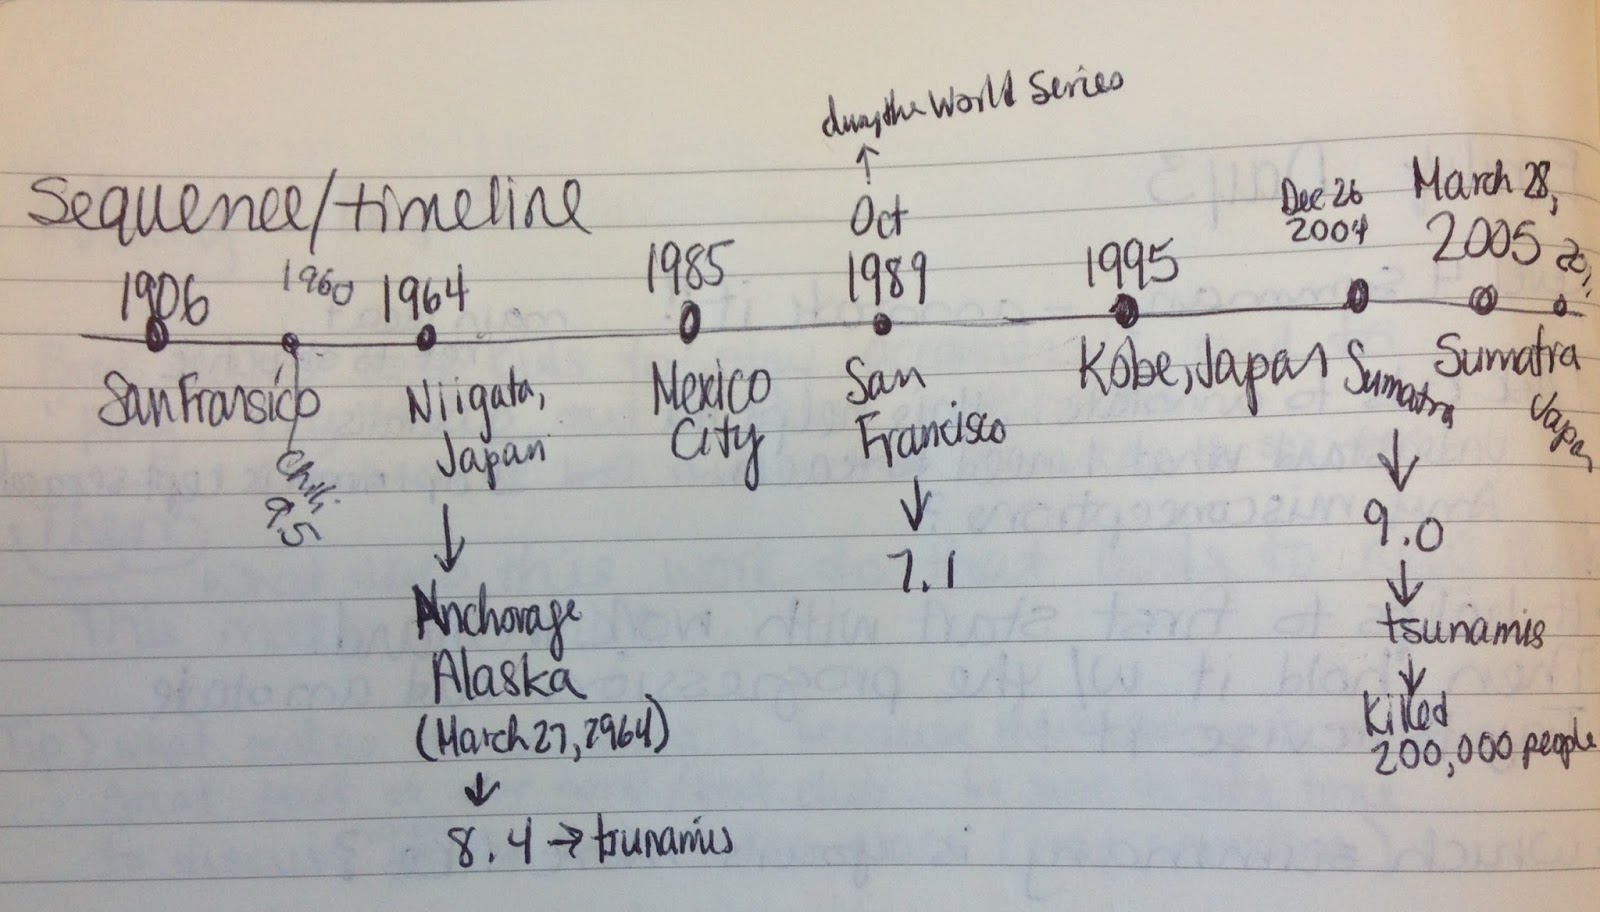 during the World Series
Sequence/timeline
Oct
1906
1960
1964
1985
1989
1995
Dec 26
2004
March 28,
2005
San Fransico
Chili
9.5
Niigata,
Japan
Anchorage
Alaska
(March 27, 2964)
8.4 → tsunamis
Mexico
City
San
Francisco
7.1
Kobe, Japan
Sumatra
9.0
tsunamis
Killed
200,000 people
Sumatra
Japan